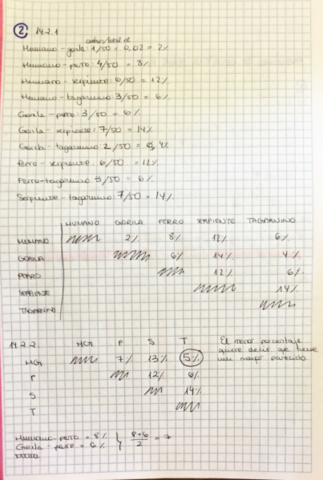 ② 14.2.1
cambios/total nt
Humano - gorila: 1/50 = 0,02 = 2%
Humano - perro: 4/50 = 8%
Humano - serpiente: 6/50 = 12%
Humano - tagarnino 3/50 = 6%
Gorila - perro: 3/50 = 6%
Gorila - serpiente: 7/50 = 14%
Gorila - tagarnino: 2/50 = 4%
Perro - serpiente: 6/50 = 12%
Perro - tagarnino 3/50 = 6%
Serpiente - tagarnino 7/50 = 14%
HUMANO GORILA PERRO SERPIENTE TAGARNINO
HUMANO 2% 8% 12% 6%
GORILA 6% 14% 4%
PERRO 12% 6%
SERPIENTE 14%
TAGARNINO
14.2.2 HG P S T
HG 7% 13% 5%
P 12% 6%
S 14%
T
El menor porcentaje
quiere decir que tiene
un mayor parentesco
Humano - perro = 8% } 8+6/2 = 7
Gorila - perro = 6%